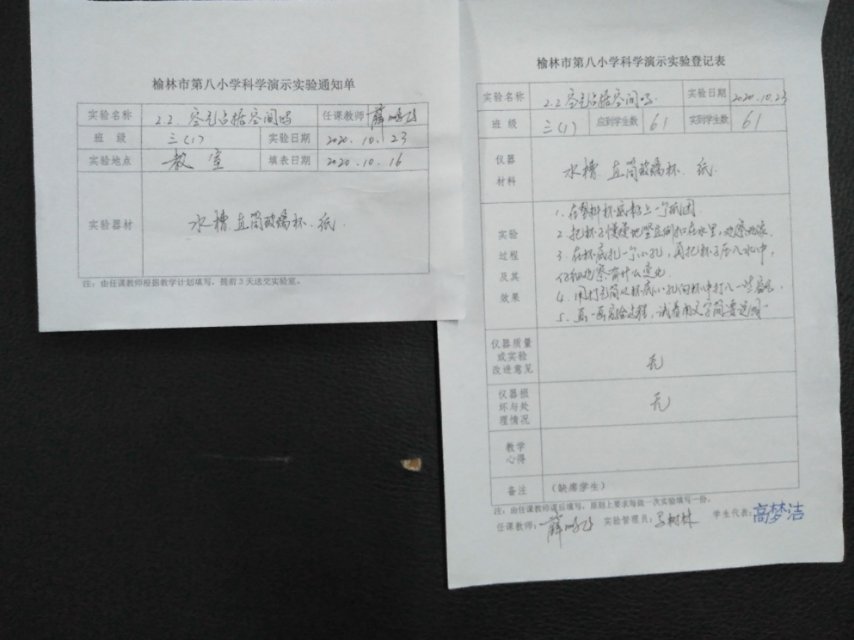 榆林市第八小学科学演示实验通知单
实验名称 2.2 空气占据空间吗 任课教师
班 级 三（1） 实验日期 2020.10.23
实验地点 教室 填表日期 2020.10.16
实验器材 水槽 直筒玻璃杯 纸
注：由任课教师根据教学计划填写，提前3天送交实验室。
榆林市第八小学科学演示实验登记表
实验名称 2.2 空气占据空间吗 实验日期 2020.10.23
班 级 三（1） 应到学生数 61 实到学生数 61
仪器
材料
水槽 直筒玻璃杯 纸
实验
过程
及其
效果
1. 在塑料杯底部粘上一个纸团
2. 把杯子慢慢地竖直倒扣在水里，观察现象
3. 在杯底扎一个小孔，再把杯子压入水中，
仔细观察有什么变化
4. 用打气筒从杯底小孔向杯中打入一些空气
5. 画一画实验过程，试着用文字简要说明
仪器质量
或实验
改进意见
无
仪器损
坏与处
理情况
无
教学
心得
备注 （缺席学生）
注：由任课教师课后填写，原则上要求每做一次实验填写一份。
任课教师： 实验管理员： 学生代表：高梦洁